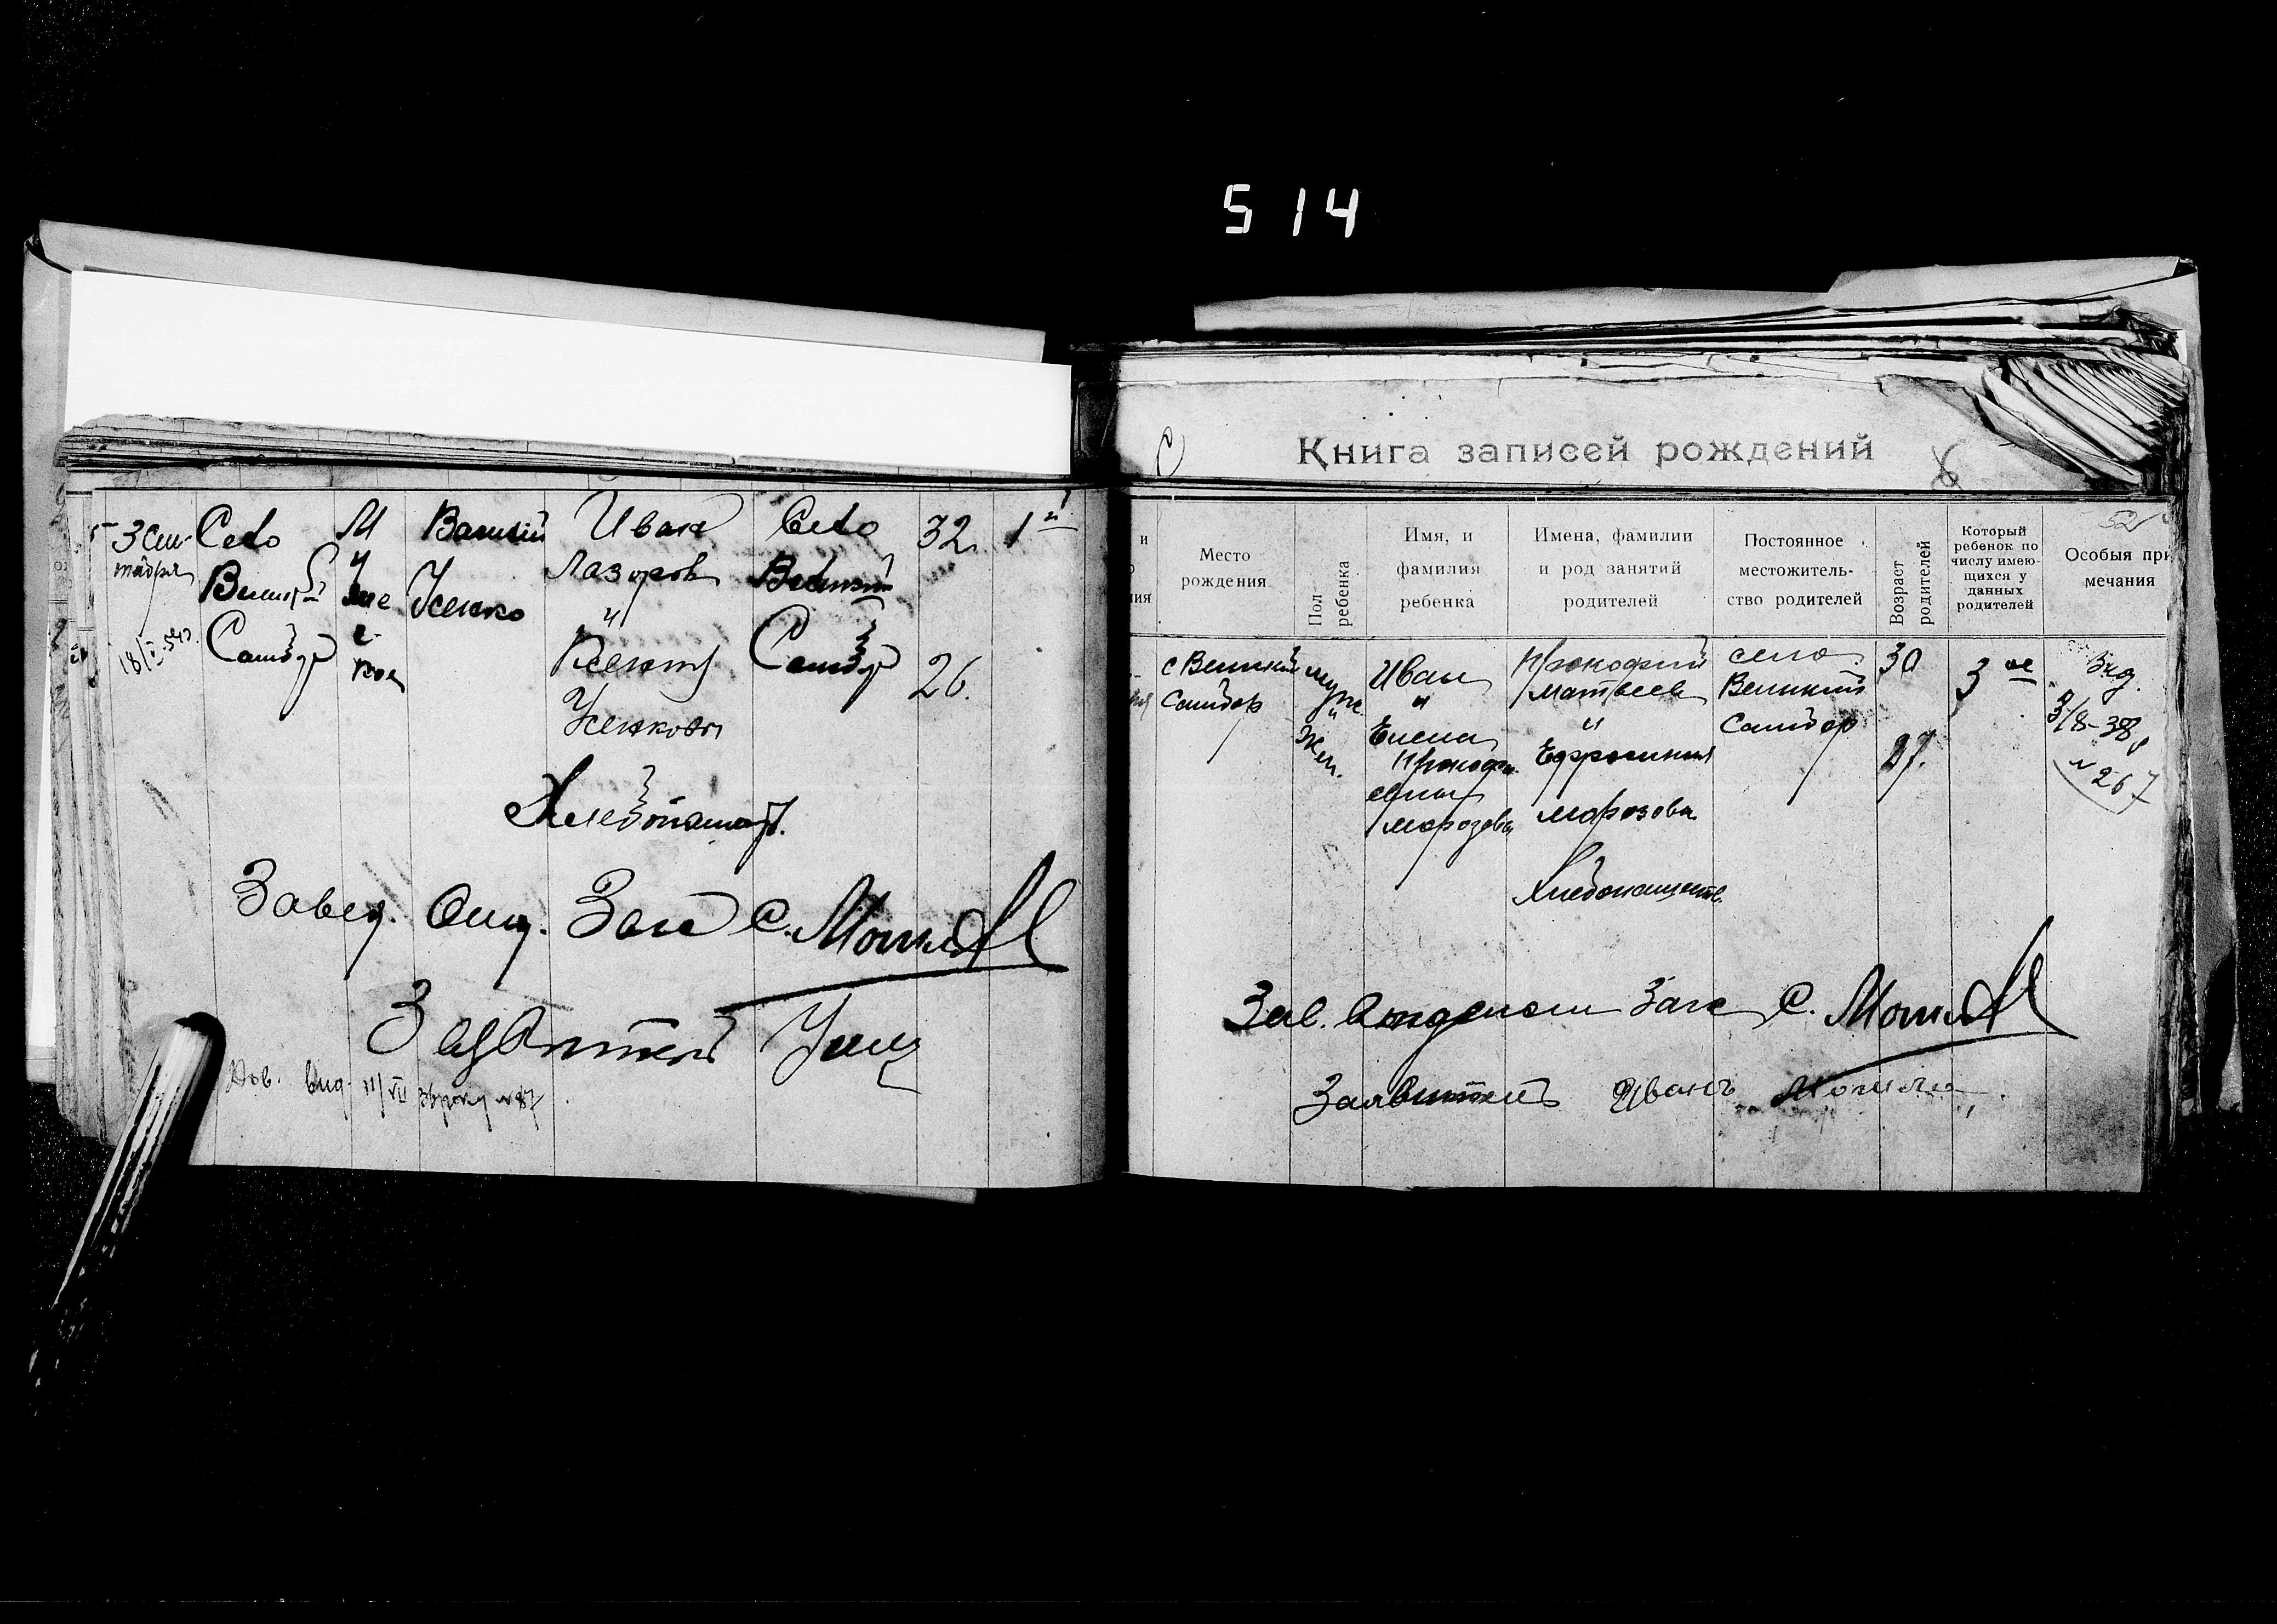 514
5 3 Сен-
тября
Село
Великий
Самбор
М
у
же
с
кой
Василий
Усенко
Иван
Лазоров
и
Ксения
Усенковы
Село
Великий
Самбор
32
26.
1й
Хлебопашест.
Завед. Отд. Загс С.
Заявитель
Вид. 11/VII
Книга записей рождений
52
и
ия
Место
рождения
Пол
ребенка
Имя, и
фамилия
ребенка
Имена, фамилии
и род занятий
родителей
Постоянное
местожитель-
ство родителей
Возраст
родителей
Который
ребенок по
числу имею-
щихся у
данных
родителей
Особыя при
мечания
с Великий
Самбор
муж.
и
Жен.
Иван
и
Елена
Прокофи
евны
Морозовы
Прокофий
Матвеев
и
Ефросиния
Морозовы
Хлебопашеств.
село
Великий
Самбор
30
27.
3 ое
3/8-38
№ 267
Зав. Отделом Загс С.
Заявитель Иванъ